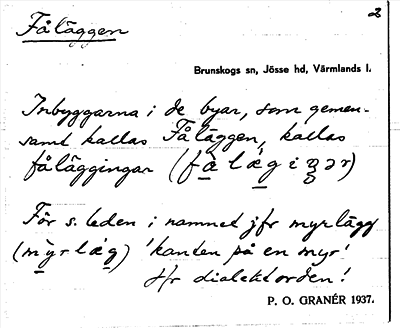 2
Fåläggen
Brunskogs sn, Jösse hd, Värmlands l.
Inbyggarna i de byar, som gemen-
samt kallas Fåläggen, kallas
fåläggingar
För s. leden i namnet jfr myrlägg
'kanten på en myr'
Hr dialektorden!
P. O. GRANÉR 1937.